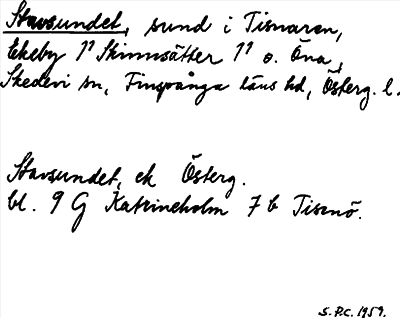 Stavsundet, sund i Tisnaren,
Ekeby 1¹ Skinnsätter 1¹ o. Öna,
Skedevi sn, Finspånga läns hd, Österg. l.
Stavsundet, ek Österg.
bl. 9 G Katrineholm 7 b Tisenö.
S. P.C. 1959.